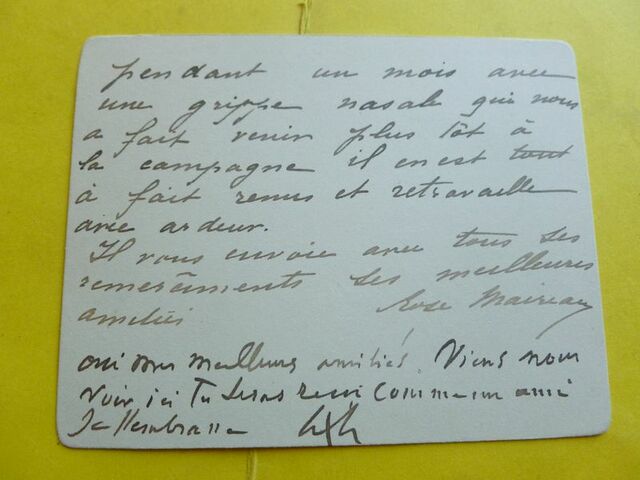 pendant un mois avec
une grippe nasale qui nous
a fait venir plus tôt à
la campagne il en est tout
à fait remis et retravaille
avec ardeur.
Il vous envoie avec tous ses
remercîments ses meilleures
amitiés Rose Maireau
oui mes meilleurs amitiés. Viens nous
voir ici Tu seras reçu comme un ami
Je t'embrasse